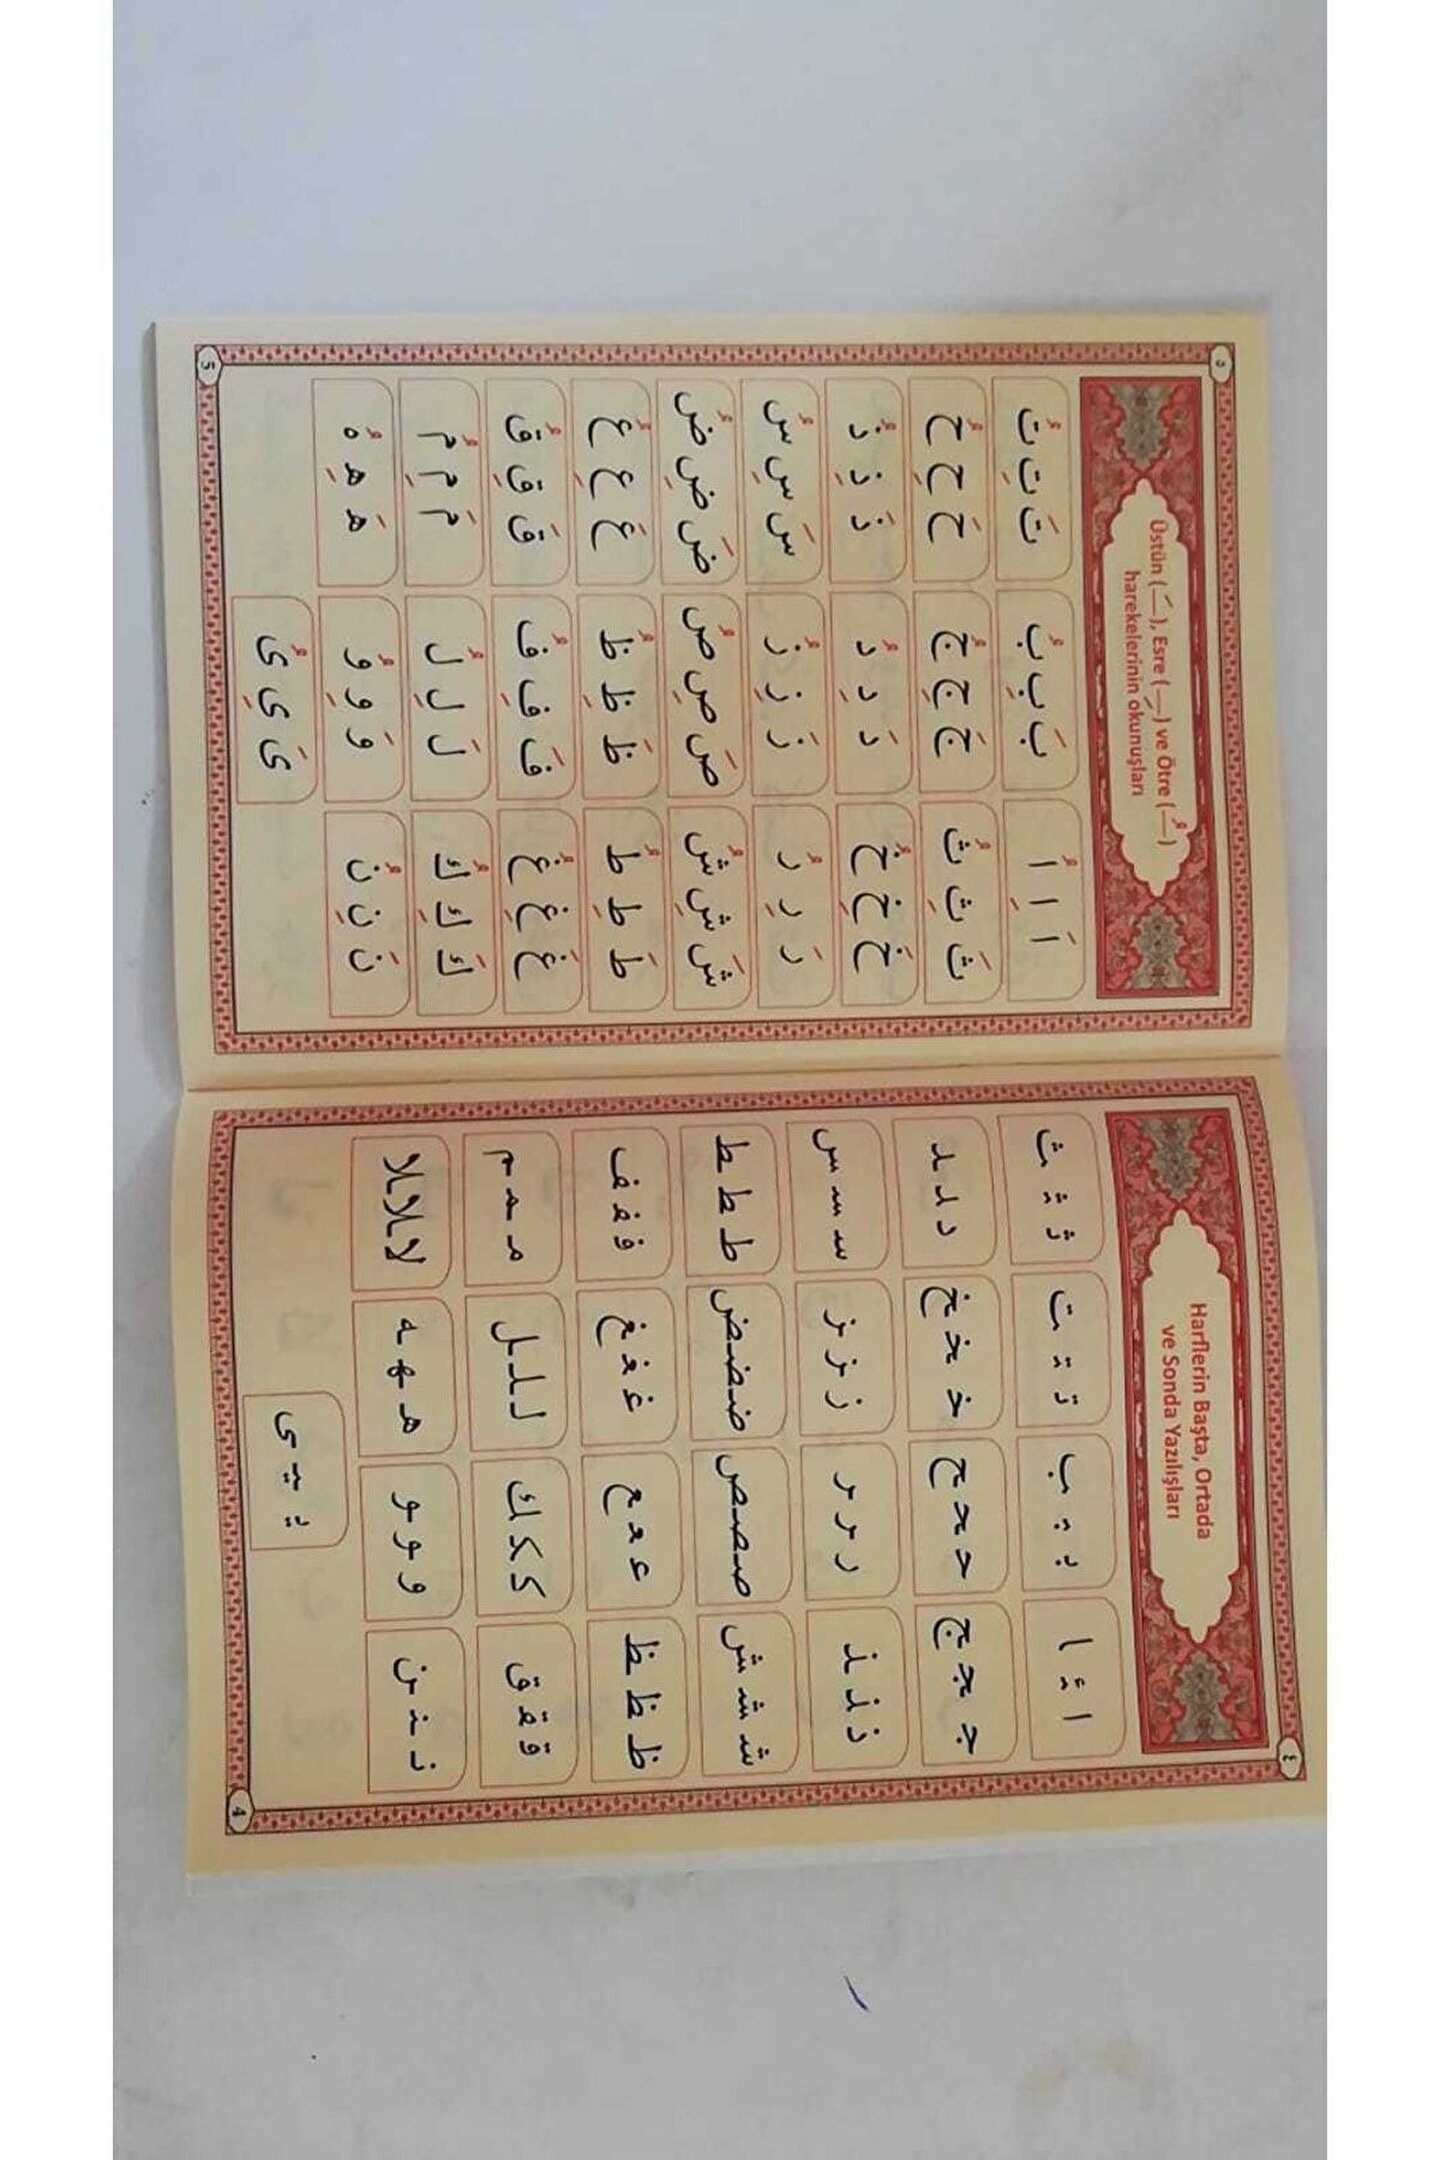 ٤
Harflerin Başta, Ortada
ve Sonda Yazılışları
ا ئ ـا بـ ـبـ ـب تـ ـتـ ـت ثـ ـثـ ـث
جـ ـجـ ـج حـ ـحـ ـح خـ ـخـ ـخ د ـد ـد
ذ ـذ ـذ ر ـر ـر ز ـز ـز سـ ـسـ ـس
شـ ـشـ ـش صـ ـصـ ـص ضـ ـضـ ـض ط ـطـ ـط
ظ ـظـ ـظ عـ ـعـ ـع غـ ـغـ ـغ فـ ـفـ ـف
قـ ـقـ ـق كـ ـكـ ـك لـ ـلـ ـل مـ ـمـ ـم
نـ ـنـ ـن و ـو ـو هـ ـهـ ـه لا ـلا ـلا
يـ ـيـ ـى
4
٥
Üstün (ـَـ), Esre (ـِـ) ve Ötre (ـُـ)
harekelerinin okunuşları
اَ اِ اُ بَ بِ بُ تَ تِ تُ
ثَ ثِ ثُ جَ جِ جُ حَ حِ حُ
خَ خِ خُ دَ دِ دُ ذَ ذِ ذُ
رَ رِ رُ زَ زِ زُ سَ سِ سُ
شَ شِ شُ صَ صِ صُ ضَ ضِ ضُ
طَ طِ طُ ظَ ظِ ظُ عَ عِ عُ
غَ غِ غُ فَ فِ فُ قَ قِ قُ
كَ كِ كُ لَ لِ لُ مَ مِ مُ
نَ نِ نُ وَ وِ وُ هَ هِ هُ
ىَ ىِ ىُ
5